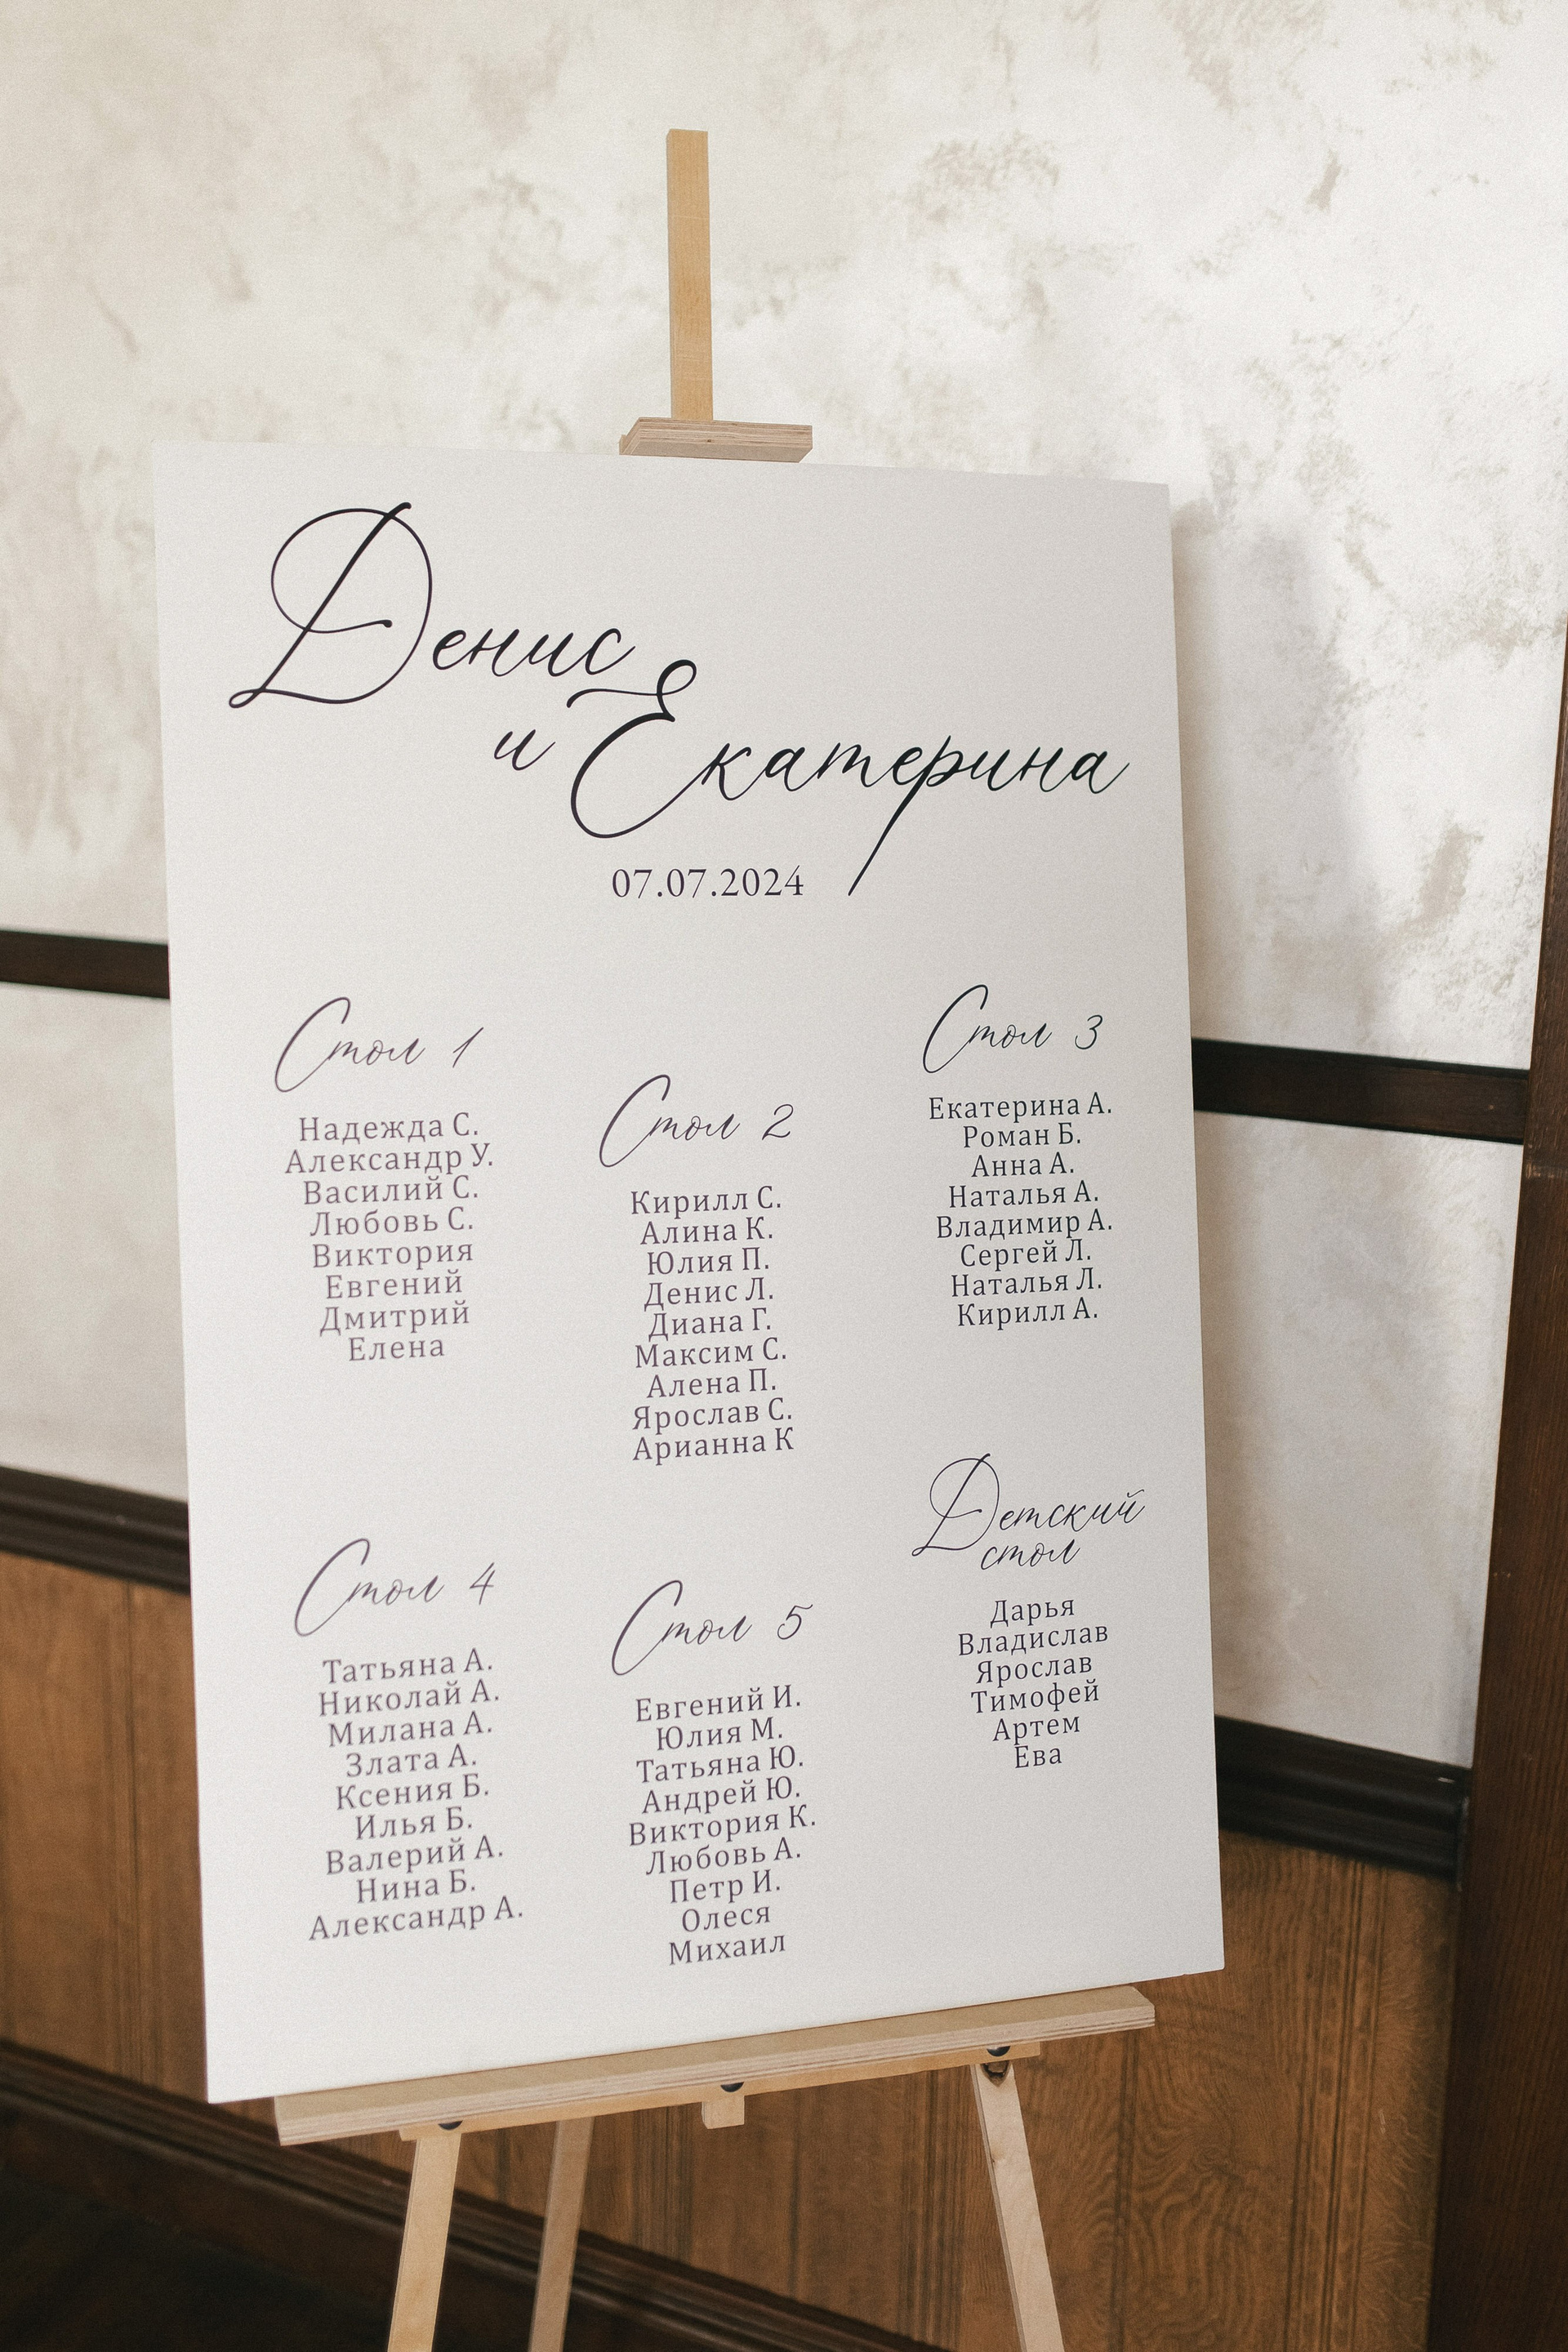 Денис
и Екатерина
07.07.2024
Стол 1
Надежда С.
Александр У.
Василий С.
Любовь С.
Виктория
Евгений
Дмитрий
Елена
Стол 2
Кирилл С.
Алина К.
Юлия П.
Денис Л.
Диана Г.
Максим С.
Алена П.
Ярослав С.
Арианна К
Стол 3
Екатерина А.
Роман Б.
Анна А.
Наталья А.
Владимир А.
Сергей Л.
Наталья Л.
Кирилл А.
Стол 4
Татьяна А.
Николай А.
Милана А.
Злата А.
Ксения Б.
Илья Б.
Валерий А.
Нина Б.
Александр А.
Стол 5
Евгений И.
Юлия М.
Татьяна Ю.
Андрей Ю.
Виктория К.
Любовь А.
Петр И.
Олеся
Михаил
Детский
стол
Дарья
Владислав
Ярослав
Тимофей
Артем
Ева